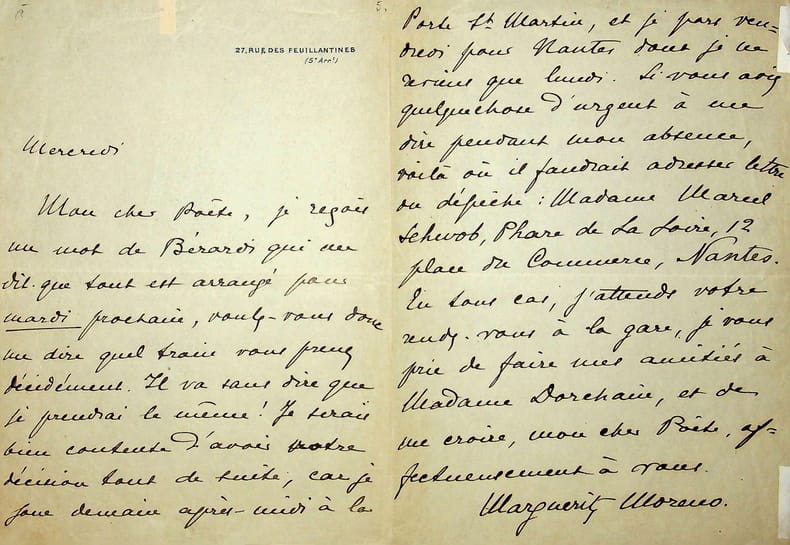 27, RUE DES FEUILLANTINES
(5e Arrt)
Mercredi
Mon cher Poète, je reçois
un mot de Bérardi qui me
dit que tout est arrangé pour
mardi prochain, voulez-vous donc
me dire quel train vous prenez
décidément. Il va sans dire que
je prendrai le même! Je serais
bien contente d'avoir votre
décision tout de suite, car je
joue demain après-midi à la
5.
Porte St Martin, et je pars ven-
dredi pour Nantes dont je ne
reviens que lundi. Si vous avez
quelquechose d'urgent à me
dire pendant mon absence,
voilà où il faudrait adresser lettre
ou dépêche : Madame Marcel
Schwob, Phare de La Loire, 12
place du Commerce, Nantes.
En tous cas, j'attends votre
rendez-vous à la gare, je vous
prie de faire mes amitiés à
Madame Dorchain, et de
me croire, mon cher Poète, af-
fectueusement à vous.
Marguerite Moreno.